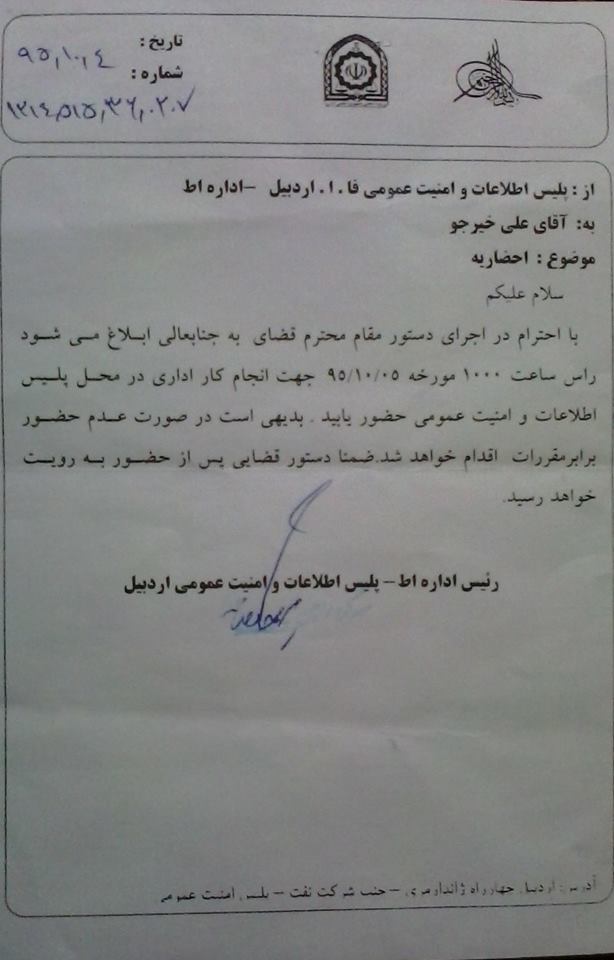 تاریخ : ۹۵,۱۰,٤
شماره :
از : پلیس اطلاعات و امنیت عمومی فا . ا . اردبیل –اداره اط
به: آقای علی خیرجو
موضوع : احضاریه
سلام علیکم
با احترام در اجرای دستور مقام محترم قضای به جنابعالی ابلاغ می شود
راس ساعت ۱۰۰۰ مورخه ۹۵/۱۰/۰۵ جهت انجام کار اداری در محل پلیس
اطلاعات و امنیت عمومی حضور یابید . بدیهی است در صورت عدم حضور
برابرمقررات اقدام خواهد شد.ضمنا دستور قضایی پس از حضور به رویت
خواهد رسید.
رئیس اداره اط– پلیس اطلاعات و امنیت عمومی اردبیل
آدرس: اردبیل چهارراه ژاندارمری – جنب شرکت نفت – پلیس امنیت عمومی